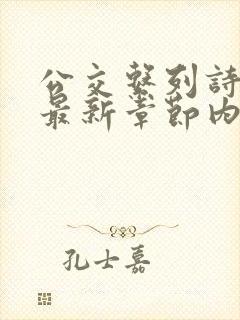 公交繫列詩
最新章節內
孔士嘉